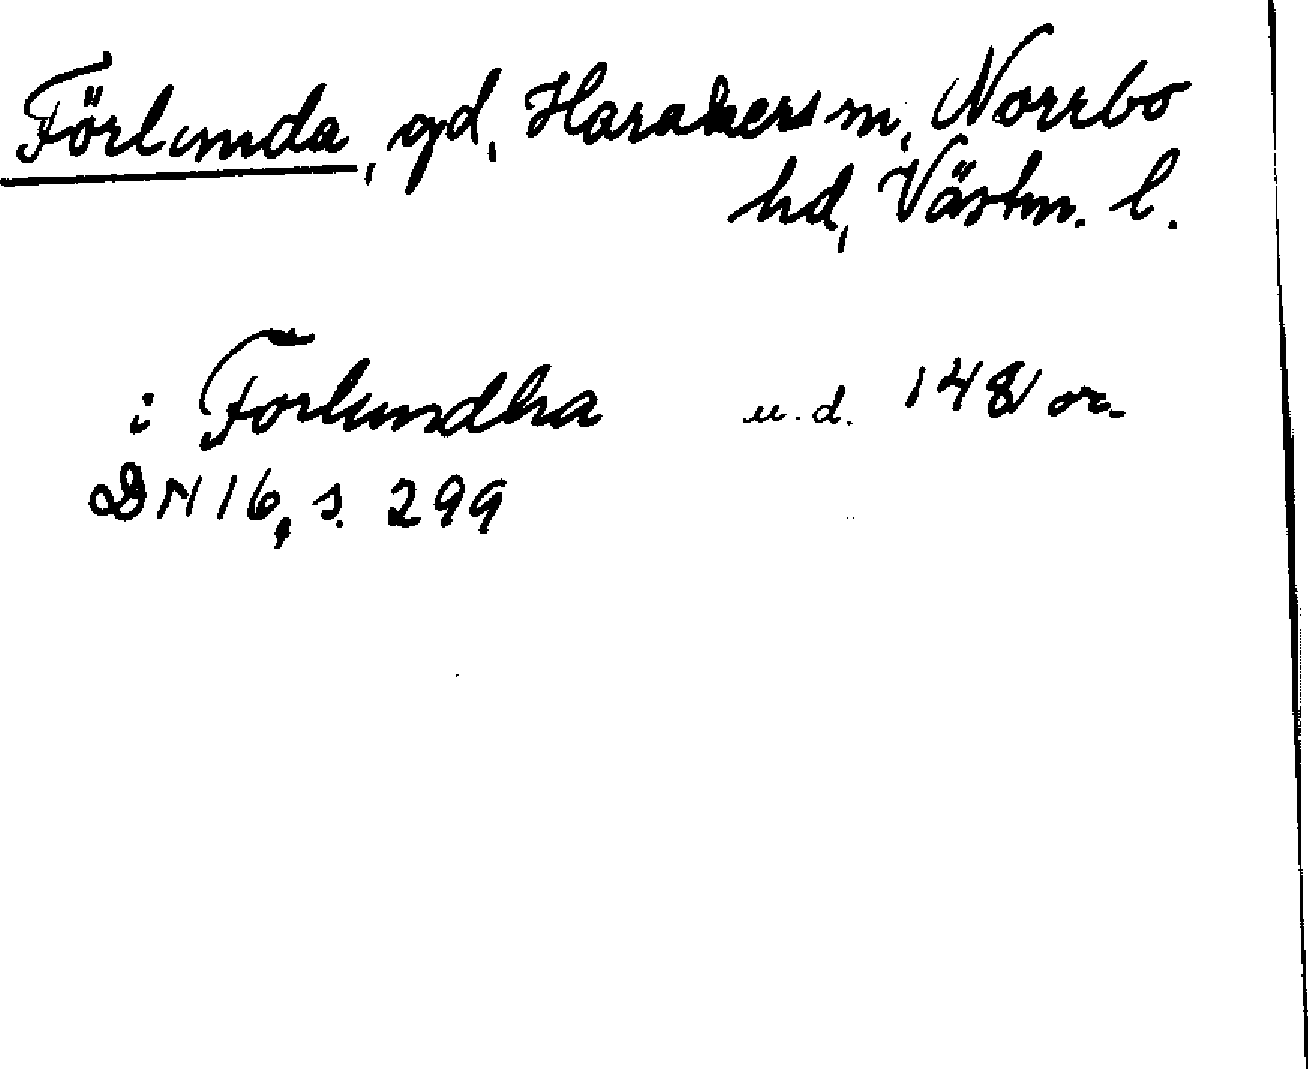 Förlunda, gd, Harakers sn, Norrbo
hd, Västm. l.
i Forlundha u.d. 148
DN 16, s. 299